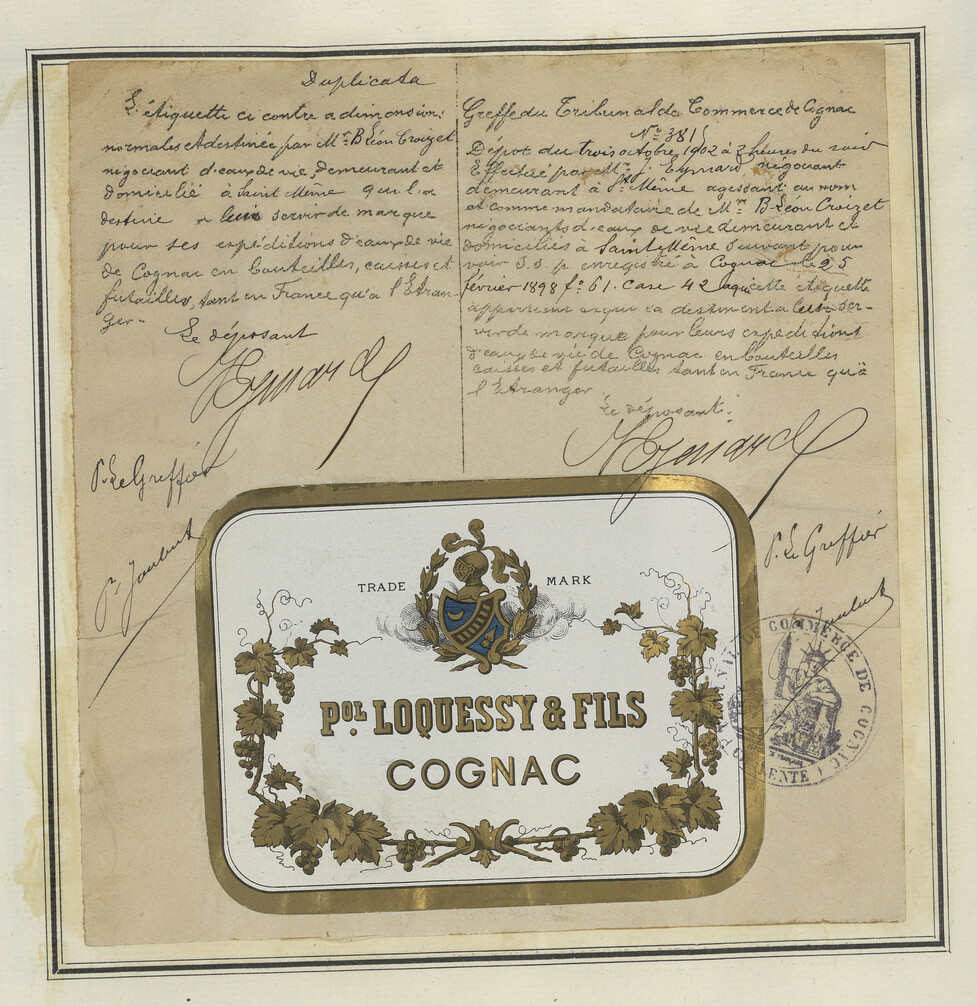 Duplicata
L'étiquette ci contre a dimensions
normales et destinée par Mr B Léon Croizet
négociant d'eaux de vie, demeurant et
domicilié à Saint Même qui l'a
destiné a lui servir de marque
pour ses expéditions d'eaux de vie
de Cognac en bouteilles, caisses et
futailles, tant en France qu'à l'Etran
ger.
Le déposant
P. Le Greffier
Greffe du Tribunal de Commerce de Cognac
No 381
Dépot du trois octobre 1902 à 2 heures du soir
Effectué par Mr J. Eymard négociant
demeurant à St Même agissant au nom
et comme mandataire de Mr B Léon Croizet
négociants d'eaux de vie demeurant et
domiciliés à Saint Même suivant pou
voir s.s.p enregistré à Cognac le 25
février 1898 fo 61. Case 42 cette étiquette
appartient et qui la destinent a ser-
vir de marque pour leurs expéditions
d'eaux de vie de Cognac en bouteilles
caisses et futailles tant en France qu'à
l'Etranger
Le déposant.
P. Le Greffier
TRADE MARK
POL. LOQUESSY & FILS
COGNAC
DE COMMERCE DE COGNAC